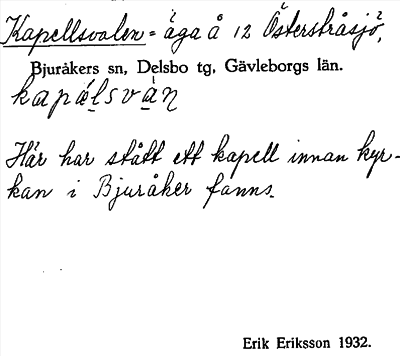 Kapellsvalen = äga å 12 Österstråsjö,
Bjuråkers sn, Delsbo tg, Gävleborgs län.
kapälsvàn
Här har stått ett kapell innan kyr-
kan i Bjuråker fanns.
Erik Eriksson 1932.